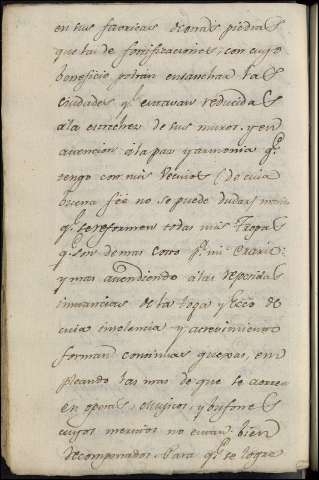 en sus fabricas de otras piedras
que las de fortificaciones, con cuyo
beneficio podran ensanchar las
Ciudades q.e estavan reducidas
a la estrechez de sus muros, y en
atencion a la paz y armonia q.e
tengo con mis Vecinos (de cuia
buena fée no se puede dudar)
q.e se reformen todas mis Tropas
q.e son de mas costo p.a mi Erario:
y mas atendiendo a las repetidas
instancias de la Ropa y de
cuia insolencia y atrevimiento
forman continuas quexas, em
pleando las mas de que se
en operas, musicos, y bufones
cuyos meritos no estan bien
recompensados. Para q.e se logre